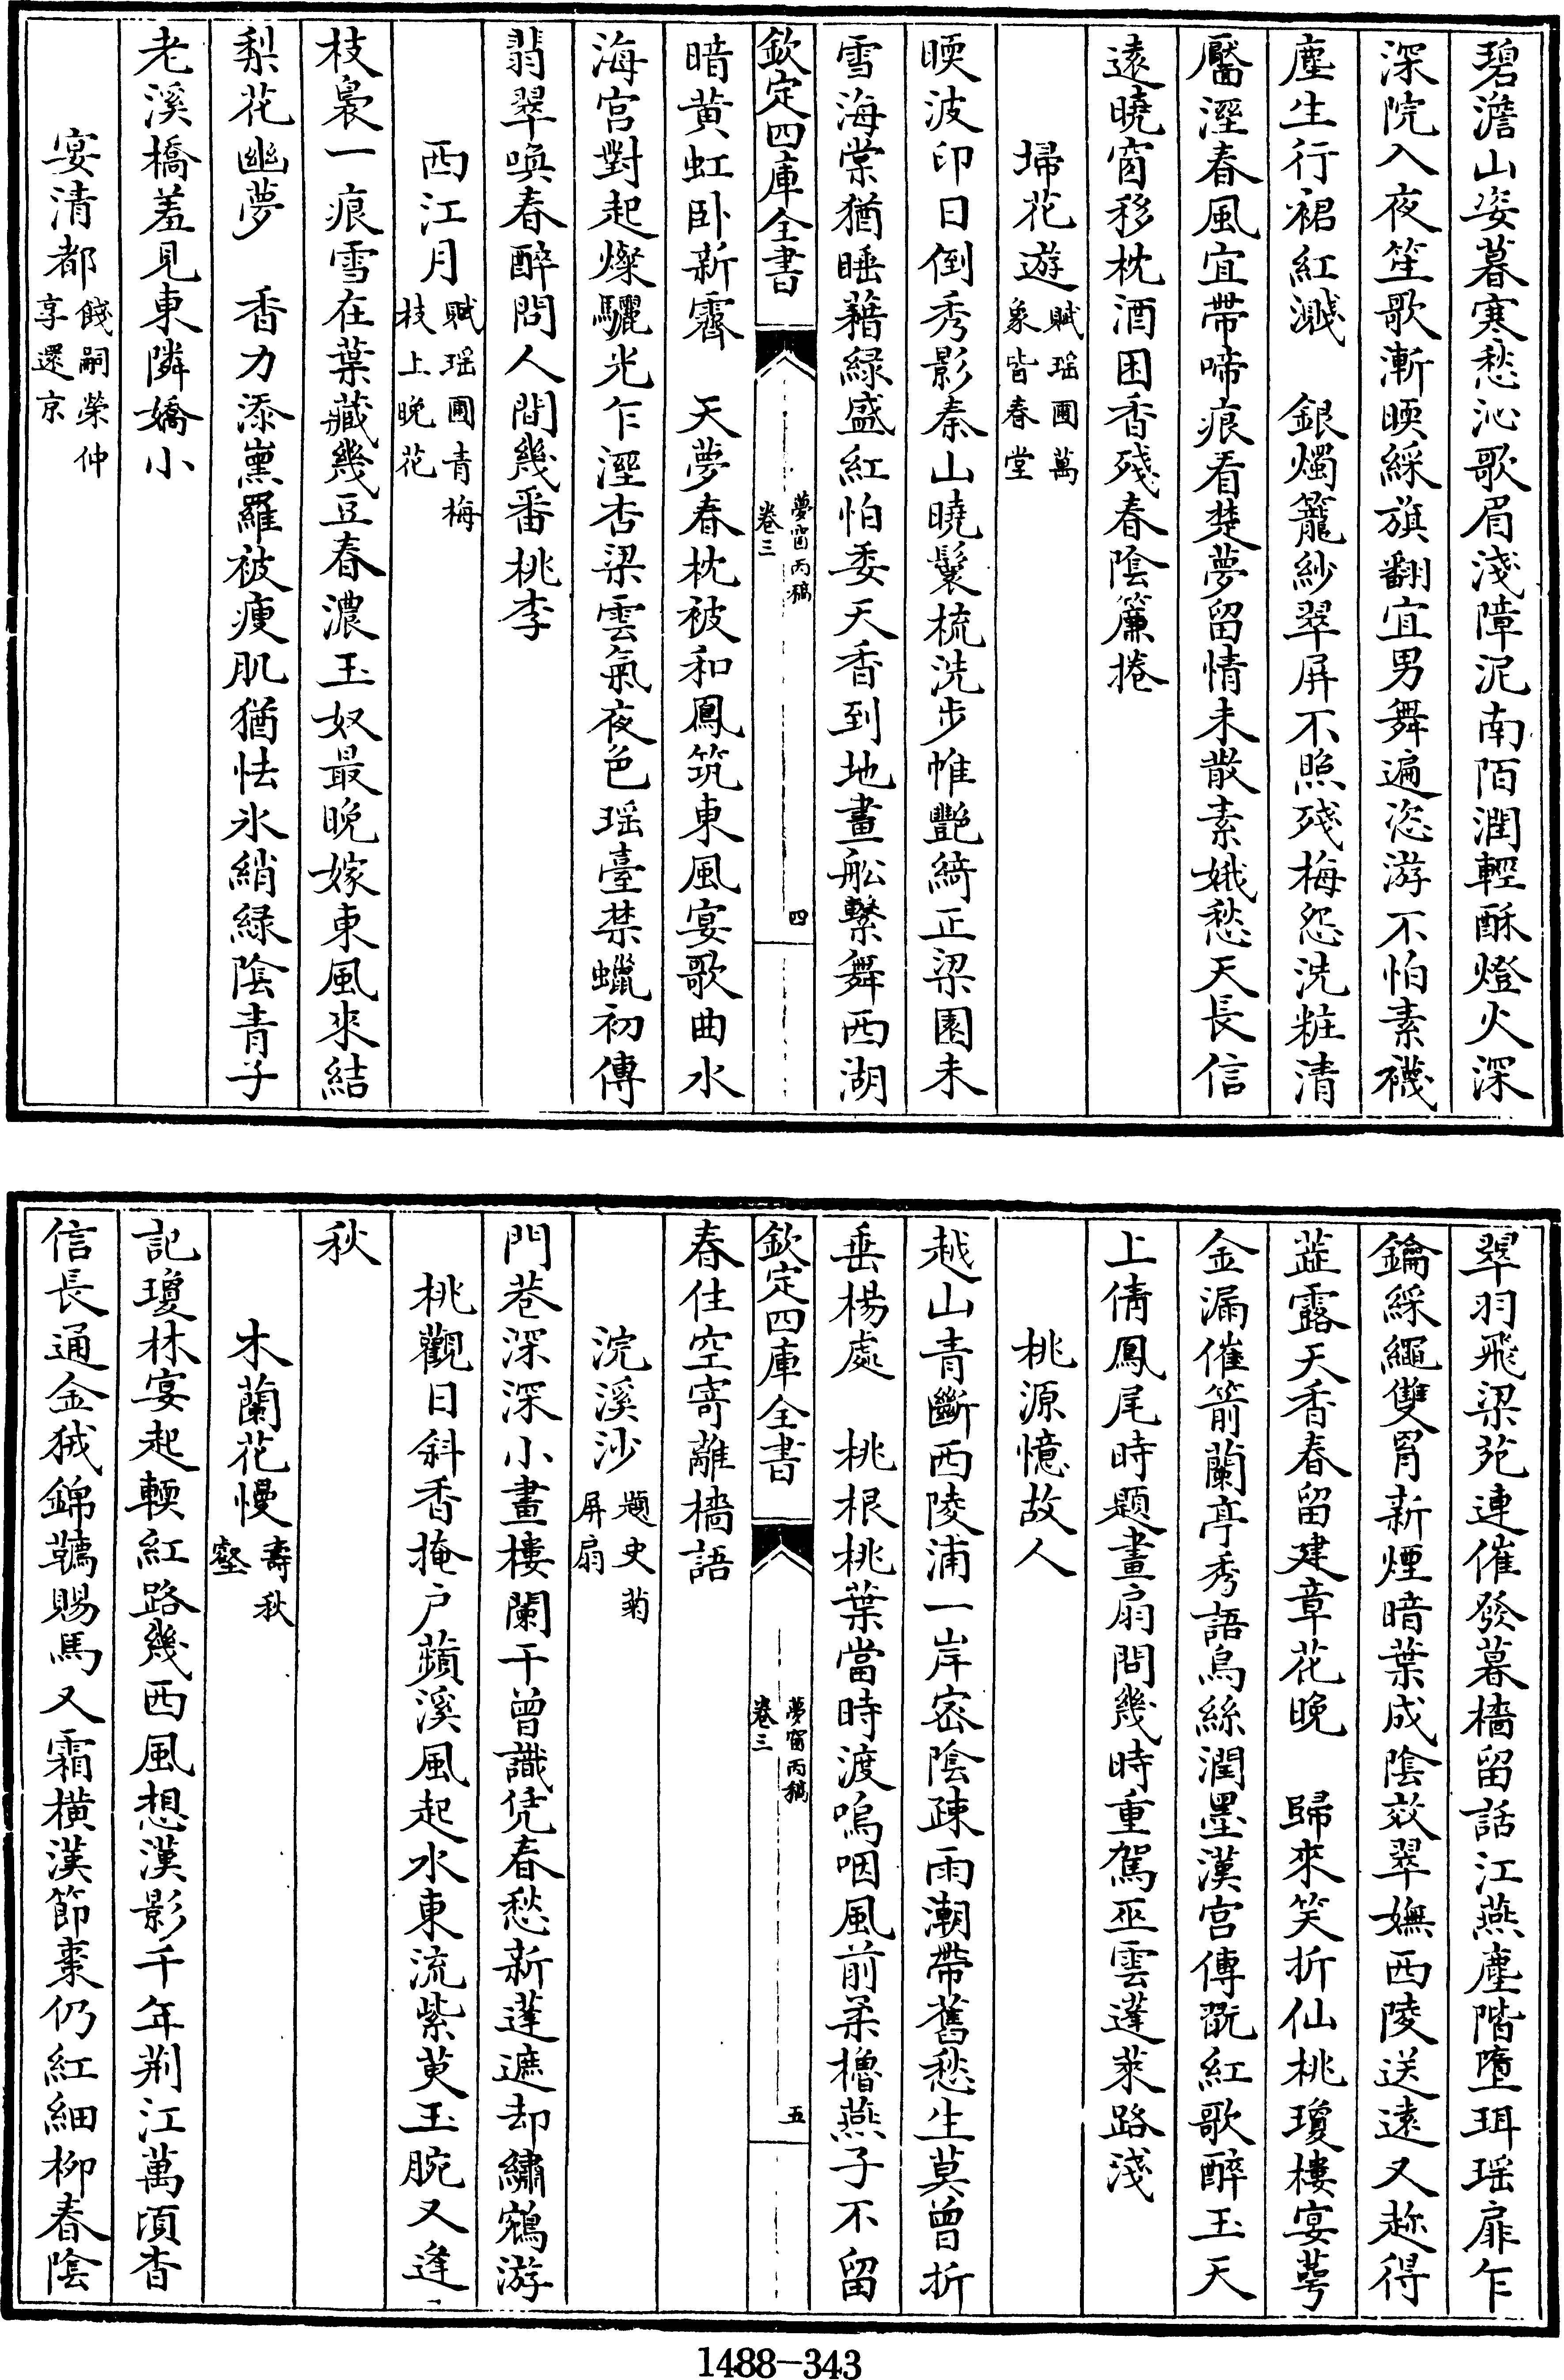 碧澹山姿暮寒愁沁歌眉淺障泥南陌潤輕酥燈火深
深院入夜笙歌漸暝綵旗翻宜男舞遍恣游不怕素襪
塵生行裙紅濺　銀燭籠紗翠屏不照殘梅怨洗粧清
靨溼春風宜帶啼痕看楚夢留情未散素娥愁天長信
遠曉窗移枕酒困香殘春陰簾捲
埽花遊賦瑶圃萬象皆春堂
暝波印日倒秀影秦山曉鬟梳洗步帷艷綺正梁園未
雪海棠猶睡藉緑盛紅怕委天香到地畫舩繫舞西湖
欽定四庫全書
夢窗丙稿
卷三
四
暗黄虹卧新霽　天夢春枕被和鳳筑東風宴歌曲水
海宫對起燦驪光乍溼杏梁雲氣夜色瑶臺禁蠟初傳
翡翠喚春醉問人間幾番桃李
西江月賦瑶圃青梅枝上晚花
枝裊一痕雪在葉藏幾豆春濃玉奴最晚嫁東風來結
梨花幽夢　香力添熏羅被瘦肌猶怯氷綃緑陰青子
老溪橋羞見東隣嬌小
宴清都餞嗣榮仲享還京
翠羽飛梁苑連催發暮檣留話江燕塵階墮珥瑶扉乍
鑰綵繩雙罥新煙暗葉成陰效翠嫵西陵送遠又趂得
蘂露天香春留建章花晚　歸來笑折仙桃瓊樓宴萼
金漏催箭蘭亭秀語烏絲潤墨漢宫傳翫紅歌醉玉天
上倩鳳尾時題畫扇問幾時重駕巫雲蓬萊路淺
桃源憶故人
越山青斷西陵浦一岸宻陰疎雨潮帶舊愁生莫曾折
垂楊處　桃根桃葉當時渡嗚咽風前柔櫓燕子不留
欽定四庫全書
夢窗丙稿
卷三
五
春住空寄離檣語
浣溪沙題史菊屏扇
門巷深深小畫樓闌干曾識凭春愁新蓬遮却繡鴛游
桃觀日斜香掩户蘋溪風起水東流紫萸玉腕又逢
秋
木蘭花慢壽秋壑
記瓊林宴起輭紅路幾西風想漢影千年荆江萬頃杳
信長通金狨錦韉賜馬又霜横漢節棗仍紅細柳春陰
1488—343